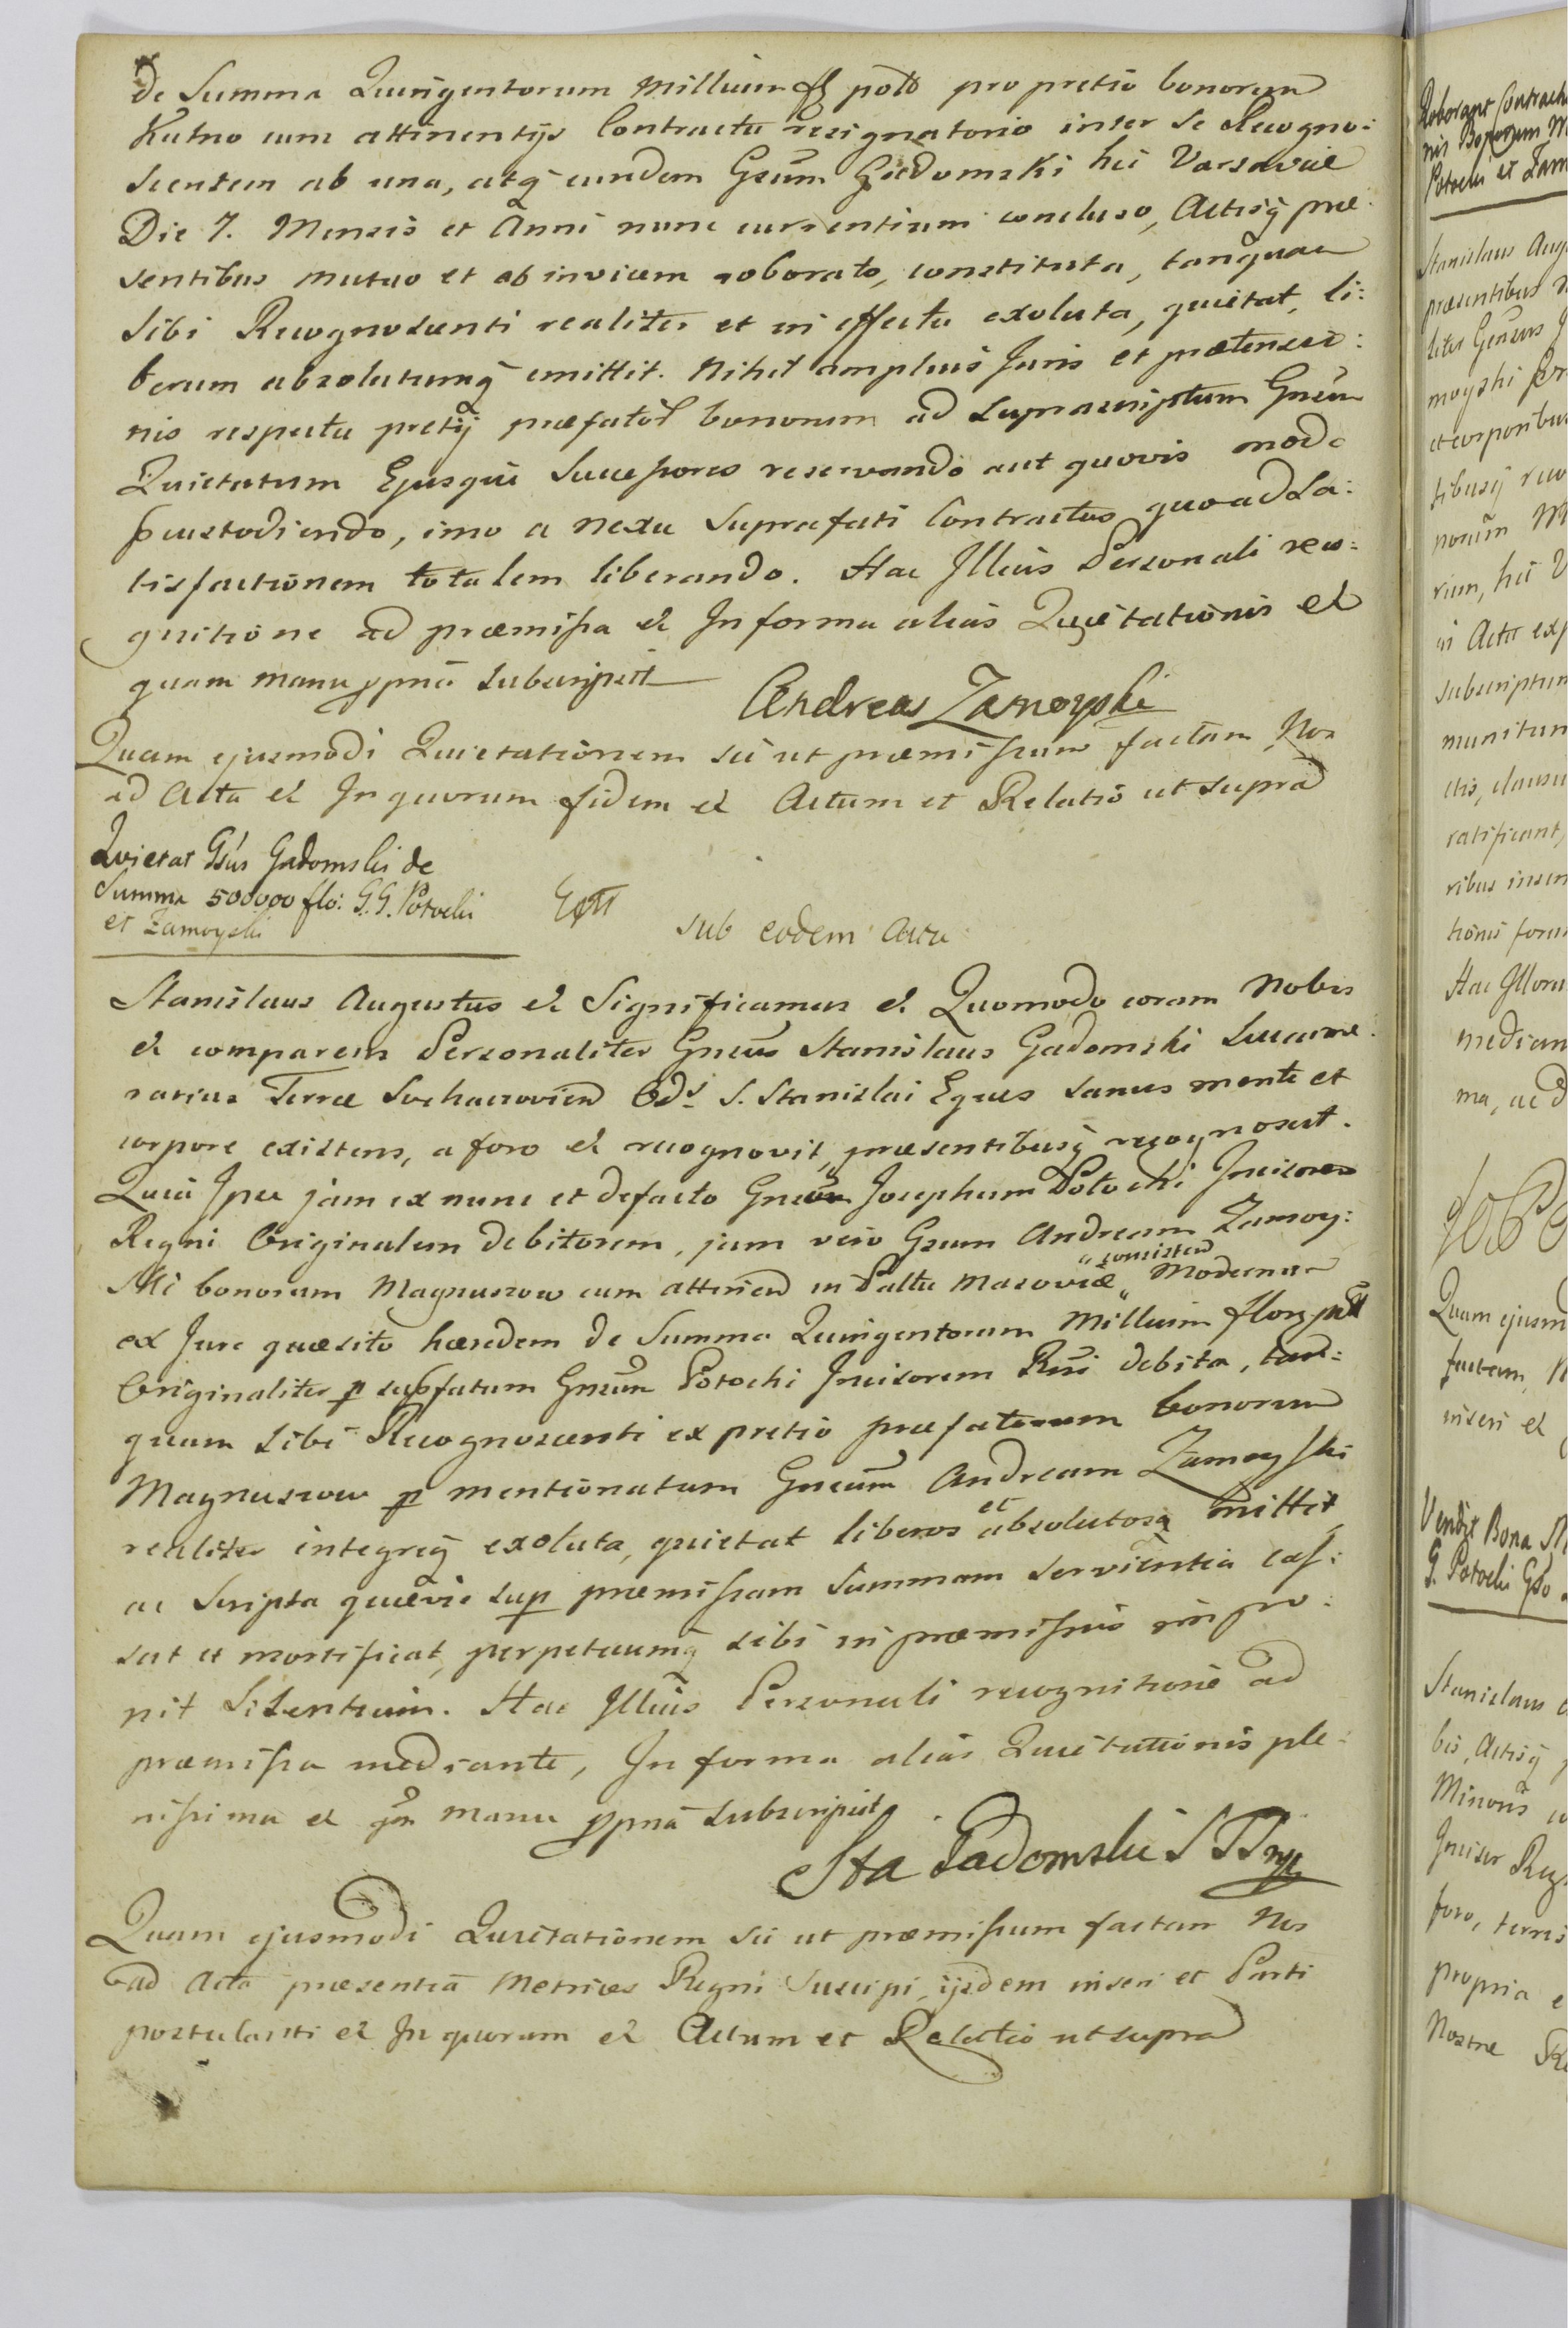 de Summa Quingentorum Millium fl poll pro pretio bonorum
Kutno cum attinentijs Contractu resignatorio inter se Recogno:
scentem ab una, atq eundem Gsum Gadomski hic Varsaviæ
Die 7. Mensis et Anni nunc currentium concluso, Actisq præ:
sentibus mutuo et ab invicem roborato, constituta, tanquam
sibi Recognoscenti realiter et in effectu exoluta, quietat, li:
berum absolutumq emittit. Nihil amplius Juris et prætensio:
nis respectu pretij præfator bonorum ad suprascriptum Gnsum
Quietatum Ejusque Successores reservando aut quovis modo
custodiendo, imo a nexu suprafati Contractus quoad Sa:
tisfactionem totalem liberando. Hac Illius Personali reco:
gnitione ad præmissa et In forma alias Quietationis et
quam manu ppria subscripsit
Andreas Zamoyski
Quam ejusmodi Quietationem sic ut præmissum factam Nos
ad Acta et In quorum fidem et Actum et Relatio ut supra
Quietat Gsus Gadomski de
Summa 500000 flo: G.G. Potocki
et Zamoyski
sub eodem Actu
Stanislaus Augustus et Significamus et Quomodo coram Nobis
et comparens Personaliter Gnsus Stanislaus Gadomski Succame:
rarius Terræ Sochaczovien Ords S. Stanislai Eques sanus mente et
corpore existens, a foro et recognovit, præsentibusq recognoscit.
Quia Ipse jam ex nunc et de facto Gnsum Josephum Potocki Incisorem
Regni Originalem debitorem, jam vero Gsum Andream Zamoy:
ski bonorum Magnuszow cum attinen in Palttu Masoviæ " consisten " Modernum
ex Jure quæsito hæredem de Summa Quingentorum Millium flor pol
Originaliter p supfatum Gnsum Potocki Incisorem Rni debita, tan:
quam sibi Recognoscenti ex pretio præfatorum bonorum
Magnuszow p mentionatum Gnsum Andream Zamoyski
realiter integreq exoluta, quietat liberos et absolutosq mittit,
ac Scripta quævis sup præmissam Summam servientia cas:
sat et mortificat, perpetuumq sibi in præmissis impo:
nit Silentium. Hac Illius Personali recognitione ad
præmissa mediante, In forma alias Quietationis ple:
nissima et qm manu ppria subscripsit
Sta Gadomski
Quam ejusmodi Quietationem sic ut præmissum factam Nos
ad Acta præsentia Metrices Regni Suscipi, ijsdem inseri et Parti
postulanti et In quorum et Actum et Relatio ut supra
Roborant Contract
Potocki et Zam
Stanislaus Aug
præsentibus
liter Gensus
moyski
et corporibus
tibusq reco
rium, hic V
in Actu exp
subscriptum
munitum
ctis, clausu
ratificant,
ribus inser
tionis form
Hac Illoru
median
ma, ac d
Quam ejusm
factam, N
inseri et
Vendit Bona M
G. Potocki Gso
Stanislaus A
bis, Actisq p
Minoris
Incisor Reg
foro, terris
propria e
Nostræ